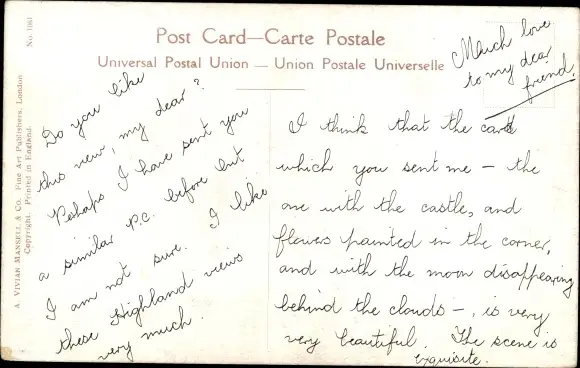 Post Card—Carte Postale
Universal Postal Union — Union Postale Universelle
No. 1061
A. Vivian Mansell & Co. Fine Art Publishers, London
Copyright. Printed in England.
Do you like
this view, my dear?
Perhaps I have sent you
a similar P.C. before but
I am not sure. I like
these Highland views
very much.
Much love
to my dear
friend.
I think that the card
which you sent me – the
one with the castle, and
flowers painted in the corner,
and with the moon disappearing
behind the clouds –, is very
very beautiful. The scene is
exquisite.